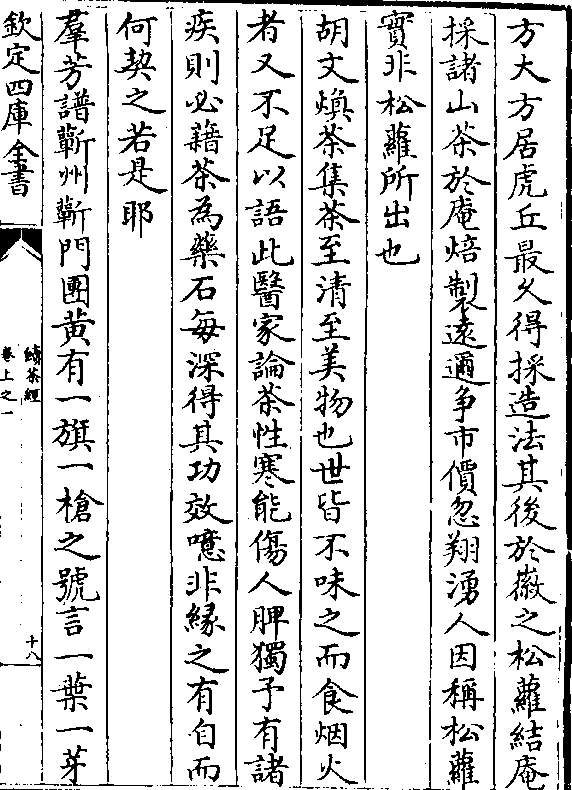 方大方居虎丘最久得採造法其後於徽之松蘿結庵
採諸山茶於庵焙製遠邇争市價忽翔湧人因稱松蘿
實非松蘿所出也
胡文煥茶集茶至清至美物也世皆不味之而食烟火
者又不足以語此醫家論茶性寒能傷人脾獨予有諸
疾則必藉茶為藥石每深得其功效噫非緣之有自而
何契之若是耶
羣芳譜蘄州蘄門團黄有一旗一槍之號言一葉一芽
欽定四庫全書
續茶經
卷上之一
十八